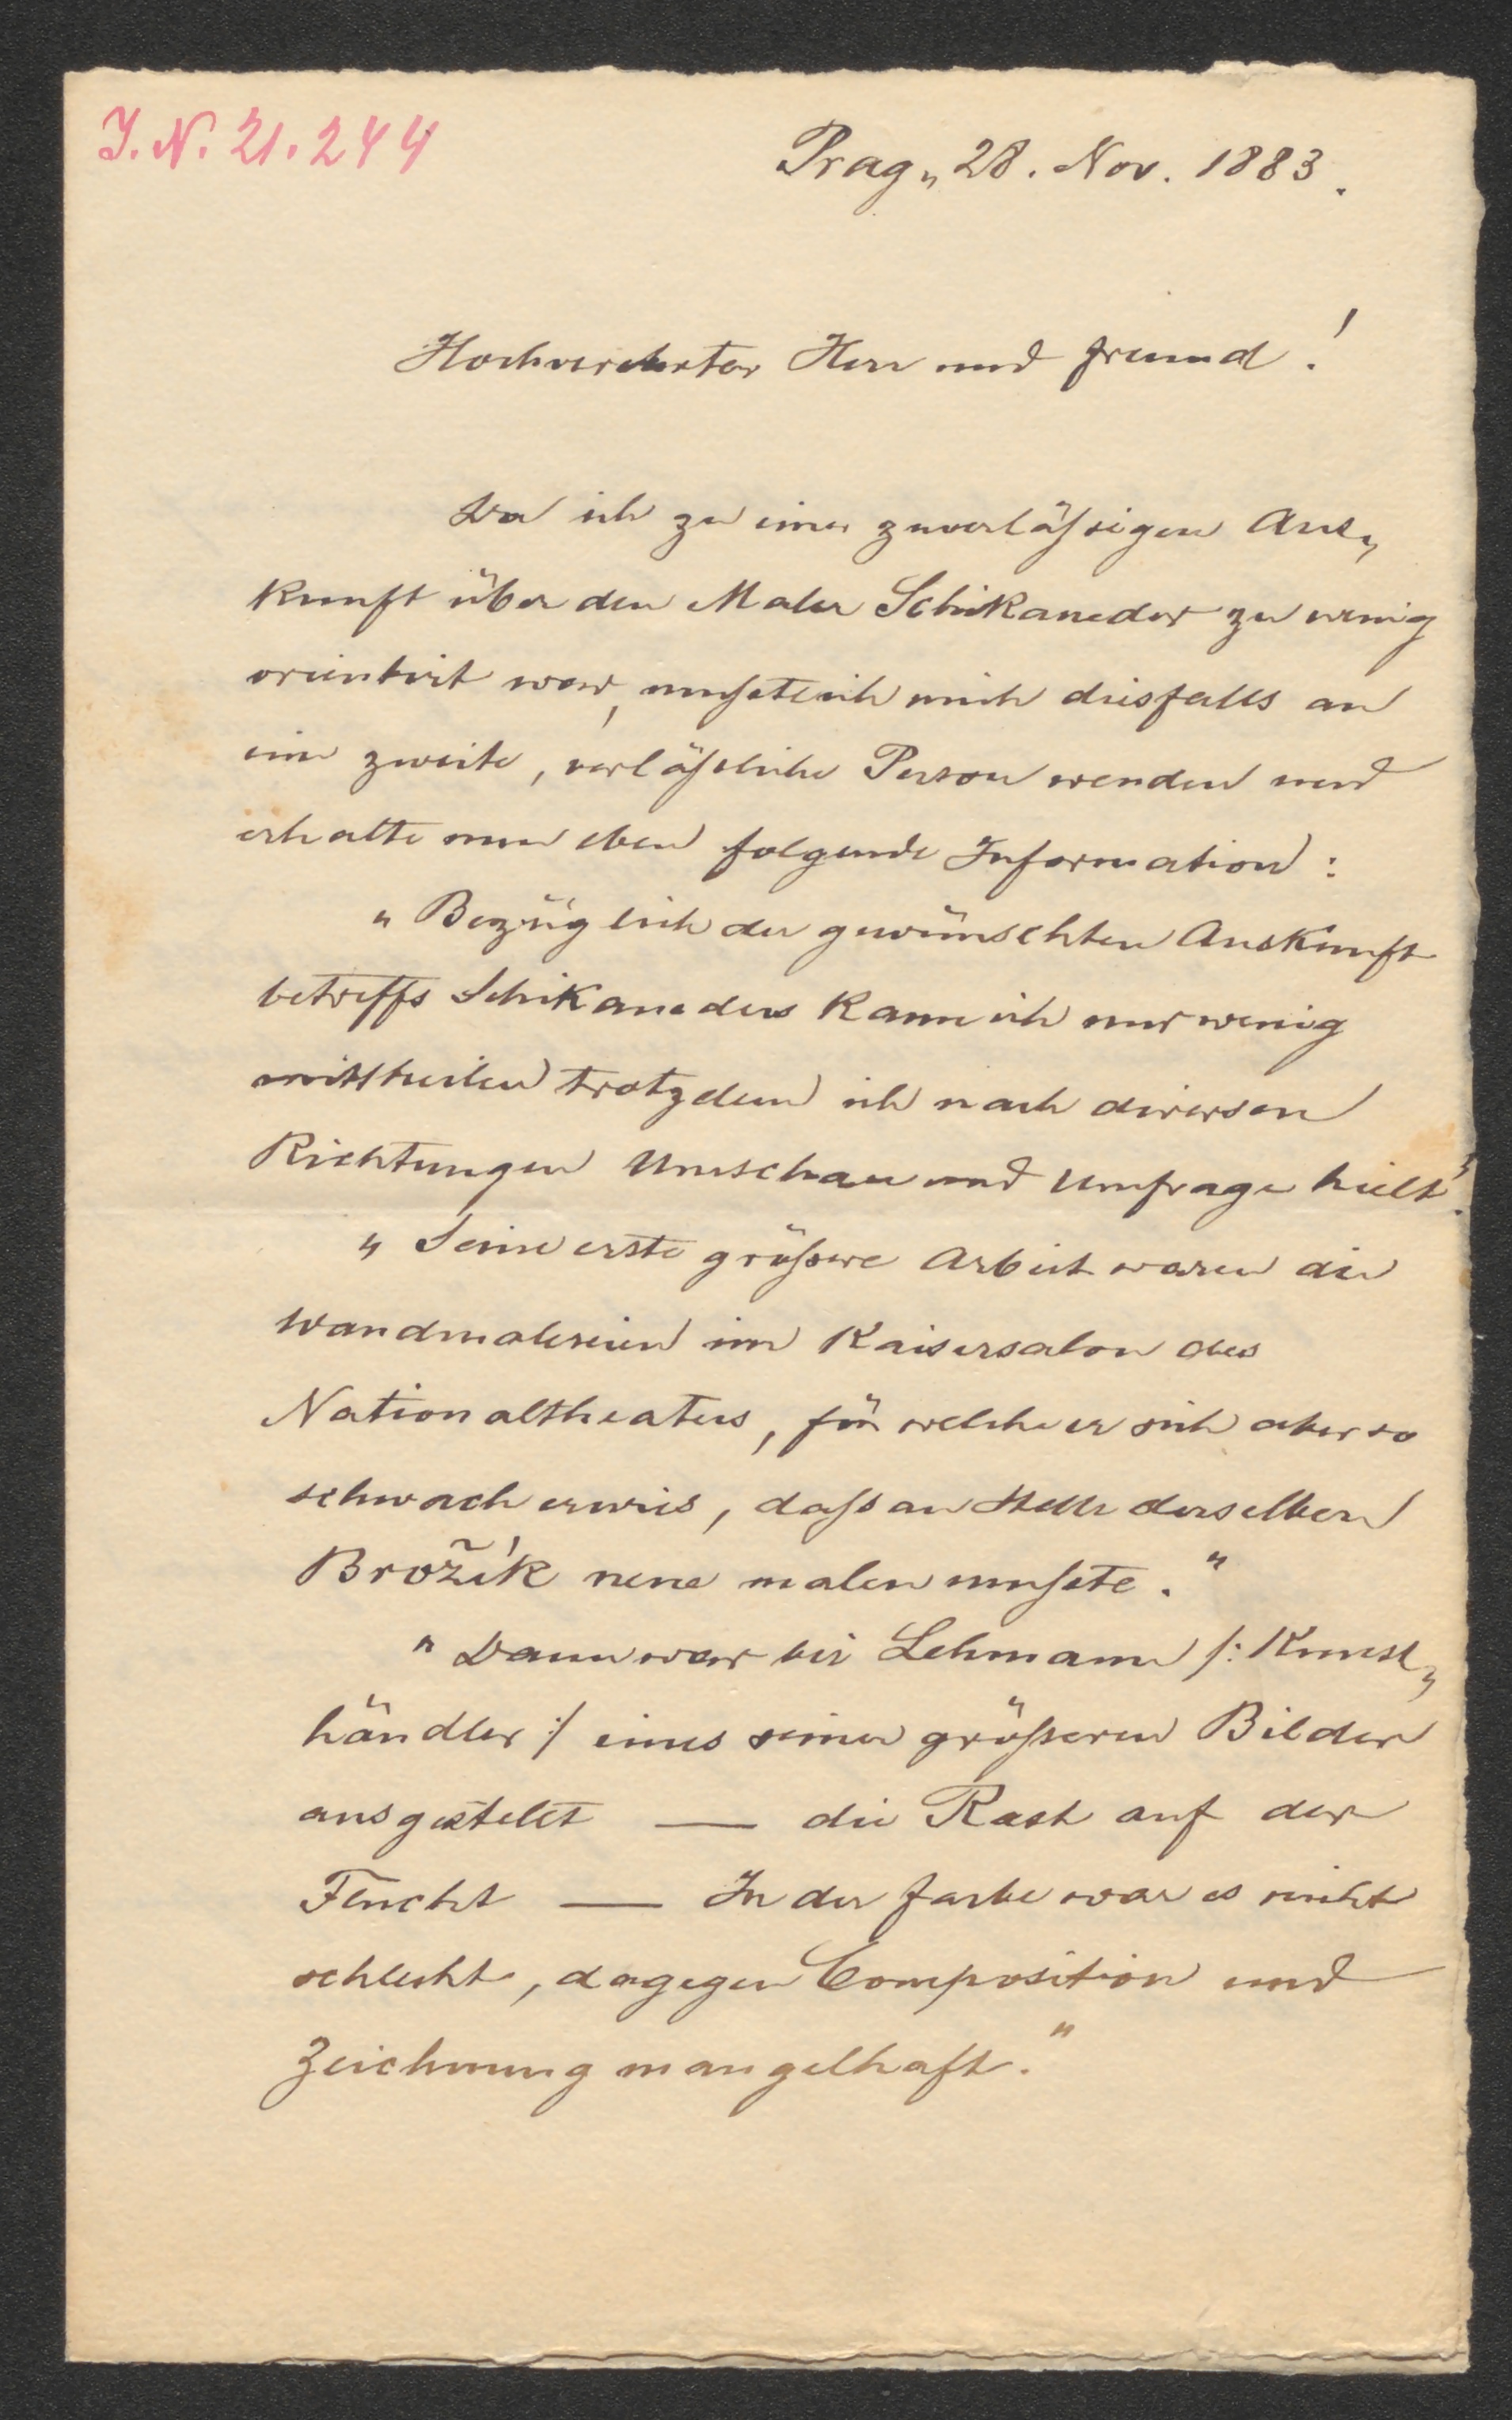 J. N. 21.244
Prag, 28. Nov. 1883.
Hochverehrter Herr und Freund!
Da ich zu einer zuverläßigen Aus„
kunft über den Maler Schikaneder zu wenig
orientirt war, mußte ich mich diesfalls an
eine zweite, verläßliche Person wenden und
erhalte nun eben folgende Information:
„Bezüglich der gewünschten Auskunft
betreffs Schikaneders kann ich nur wenig
mittheilen trotzdem ich nach diversen
Richtungen Umschau und Umfrage hielt."
„Seine erste größere Arbeit waren die
Wandmalereien im Kaisersalon des
Nationaltheaters, für welche er sich aber so
schwach erwies, daß an Stelle derselben
Brožík neue malen mußte."
„Dann war bei Lehmann /: Kunst„
händler :/ eines seiner größeren Bilder
ausgestellt — die Rast auf der
Flucht — In der Farbe war es nicht
schlecht, dagegen Composition und
Zeichnung mangelhaft."